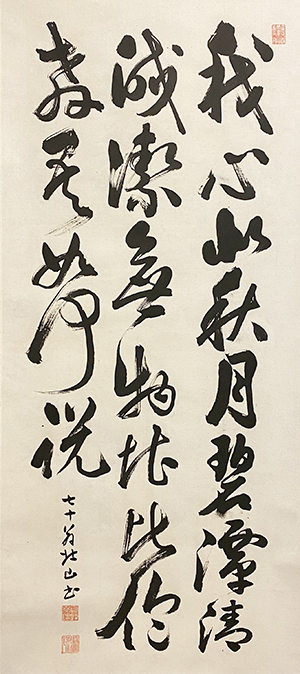 我心似秋月碧潭清
皎潔無物堪比倫
教吾如何説
七十翁山書